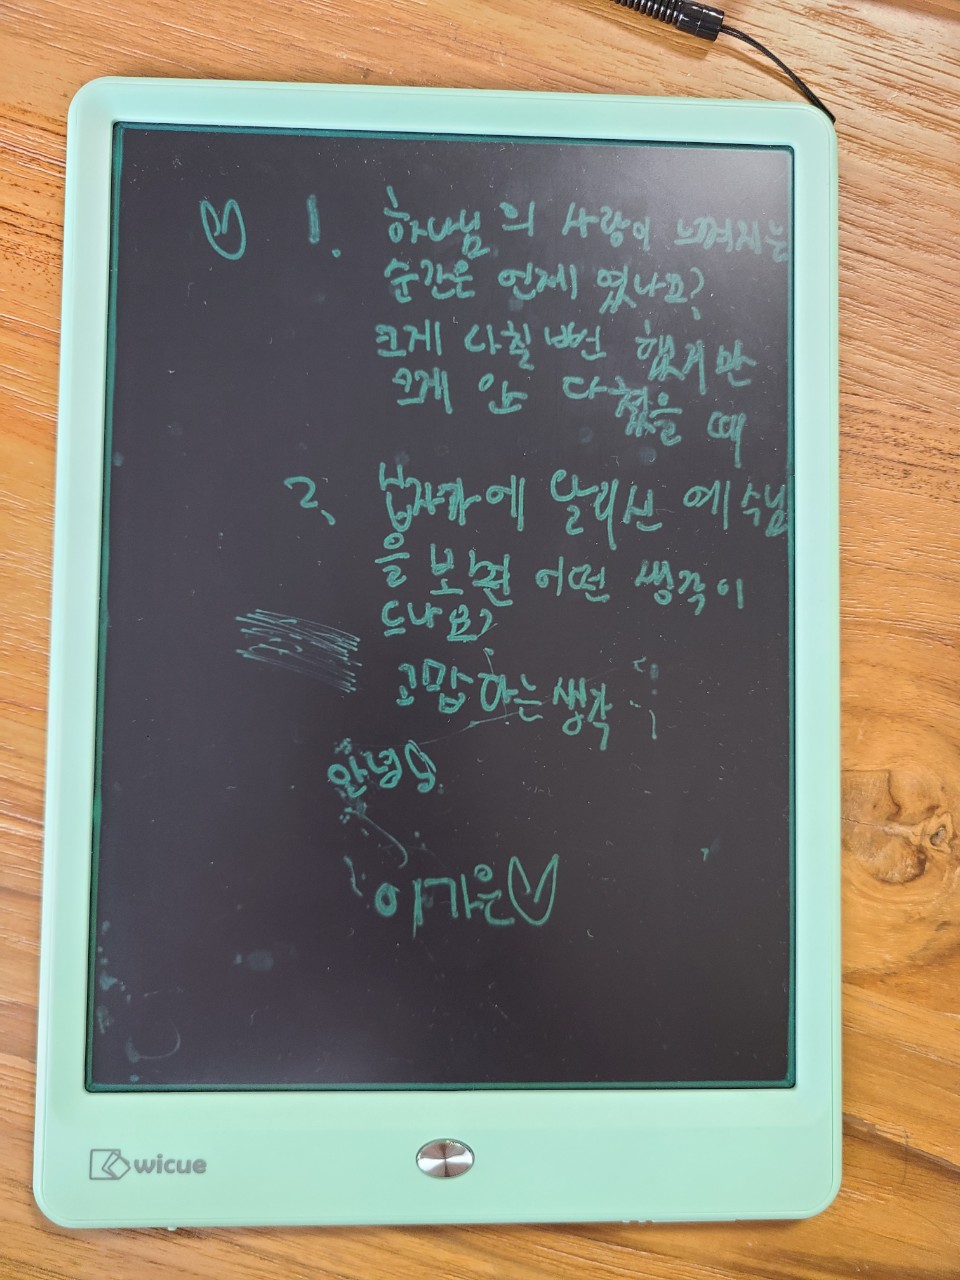 1. 하나님의 사랑이 느껴지는
순간은 언제였나요?
크게 다칠뻔 했지만
크게 안 다쳤을 때
2. 십자가에 달리신 예수님
을 보면 어떤 생각이
드나요?
고맙하는생각
안녕
이가은
wicue